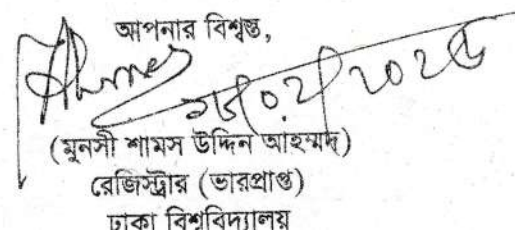 আপনার বিশ্বস্ত,
(মুনসী শামস উদ্দিন আহম্মদ)
রেজিস্ট্রার (ভারপ্রাপ্ত)
ঢাকা বিশ্ববিদ্যালয়